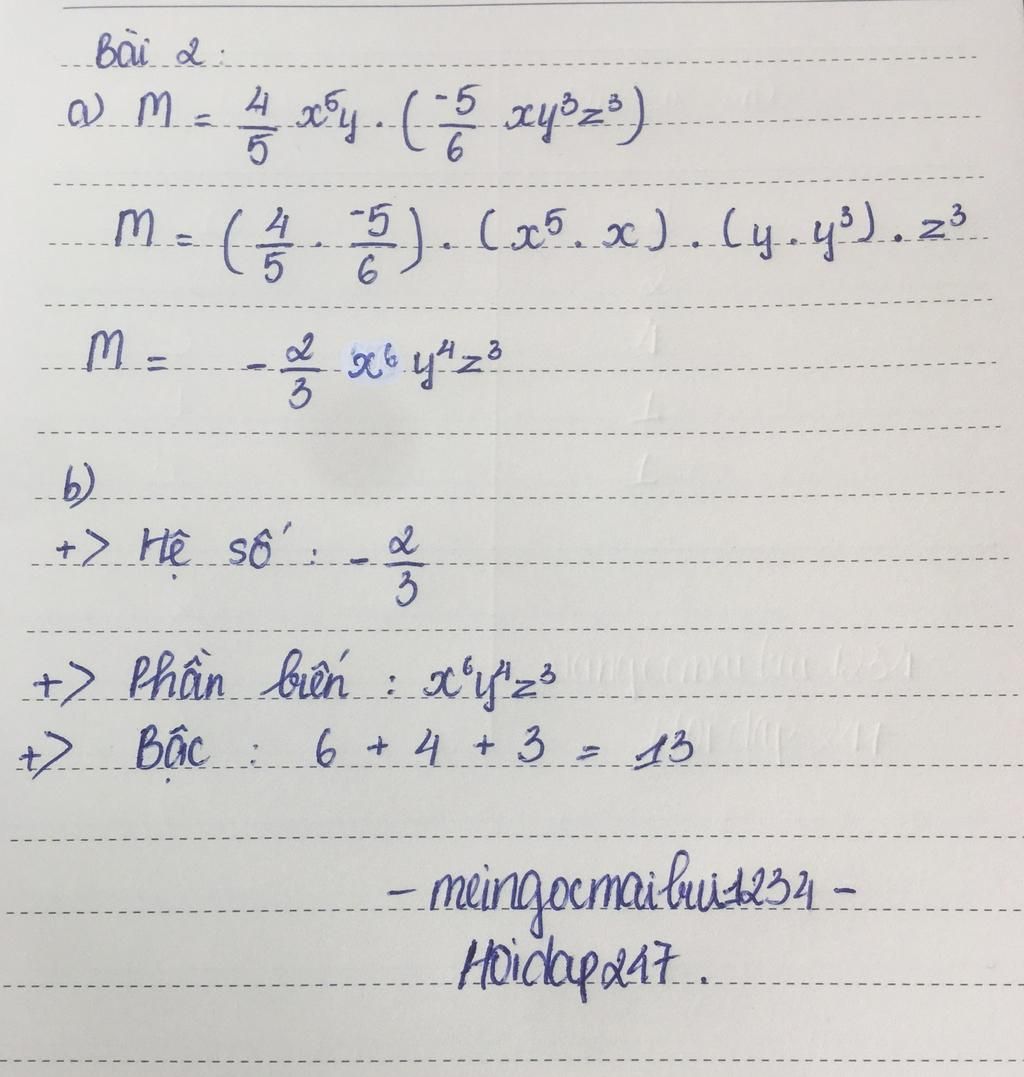 Bài 2:
a) M = 4/5 x⁵y . (-5/6 xy³z³)
M = (4/5 . -5/6) . (x⁵ . x) . (y . y³) . z³
M = - 2/3 x⁶y⁴z³
b)
+> Hệ số : - 2/3
+> Phần biến : x⁶y⁴z³
+> Bậc : 6 + 4 + 3 = 13
- meingocmaibui1234 -
Hoidap247.